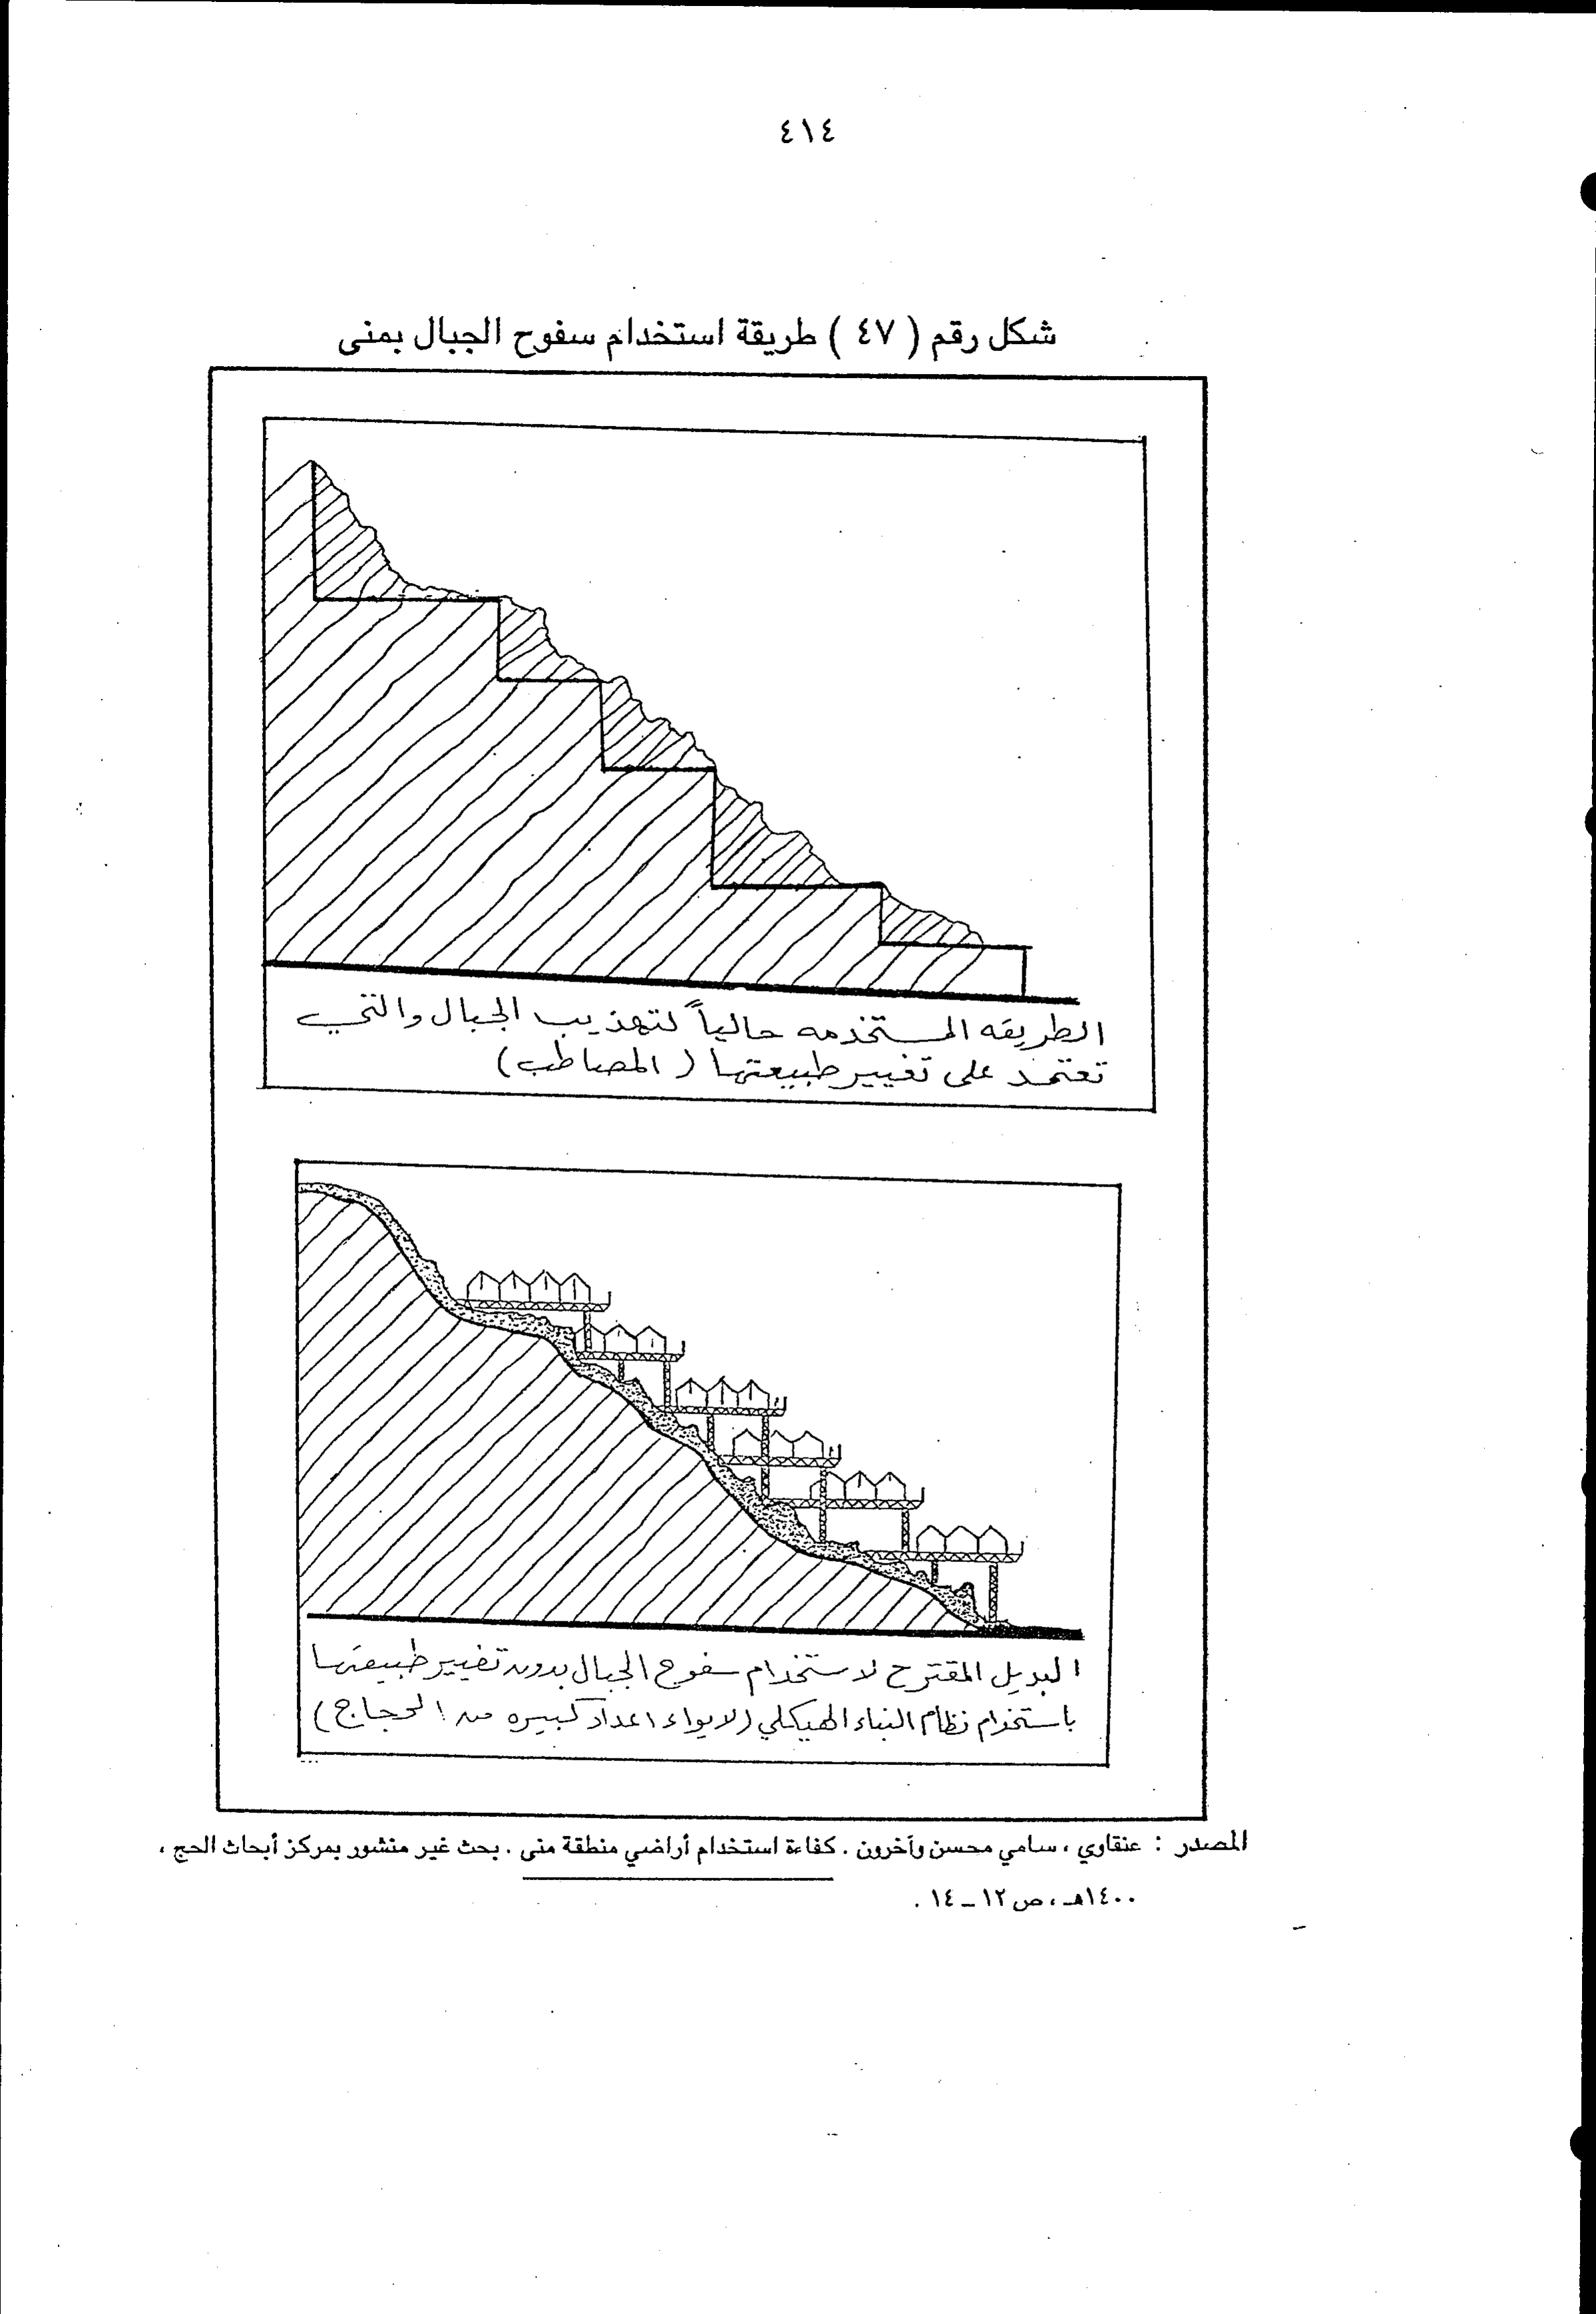 ٤١٤
شكل رقم ( ٤٧ ) طريقة استخدام سفوح الجبال بمنى
الطريقه المستخدمه حالياً لتهذيب الجبال والتي
تعتمد على تغيير طبيعتها ( المصاطب )
البديل المقترح لاستخدام سفوح الجبال بدون تغيير طبيعتها
باستخدام نظام البناء الهيكلي (لايواء اعداد كبيره من الحجاج)
المصدر : عنقاوي ، سامي محسن وآخرون . كفاءة استخدام أراضي منطقة منى . بحث غير منشور بمركز أبحاث الحج ،
١٤٠٠هـ ، ص ١٢ – ١٤ .